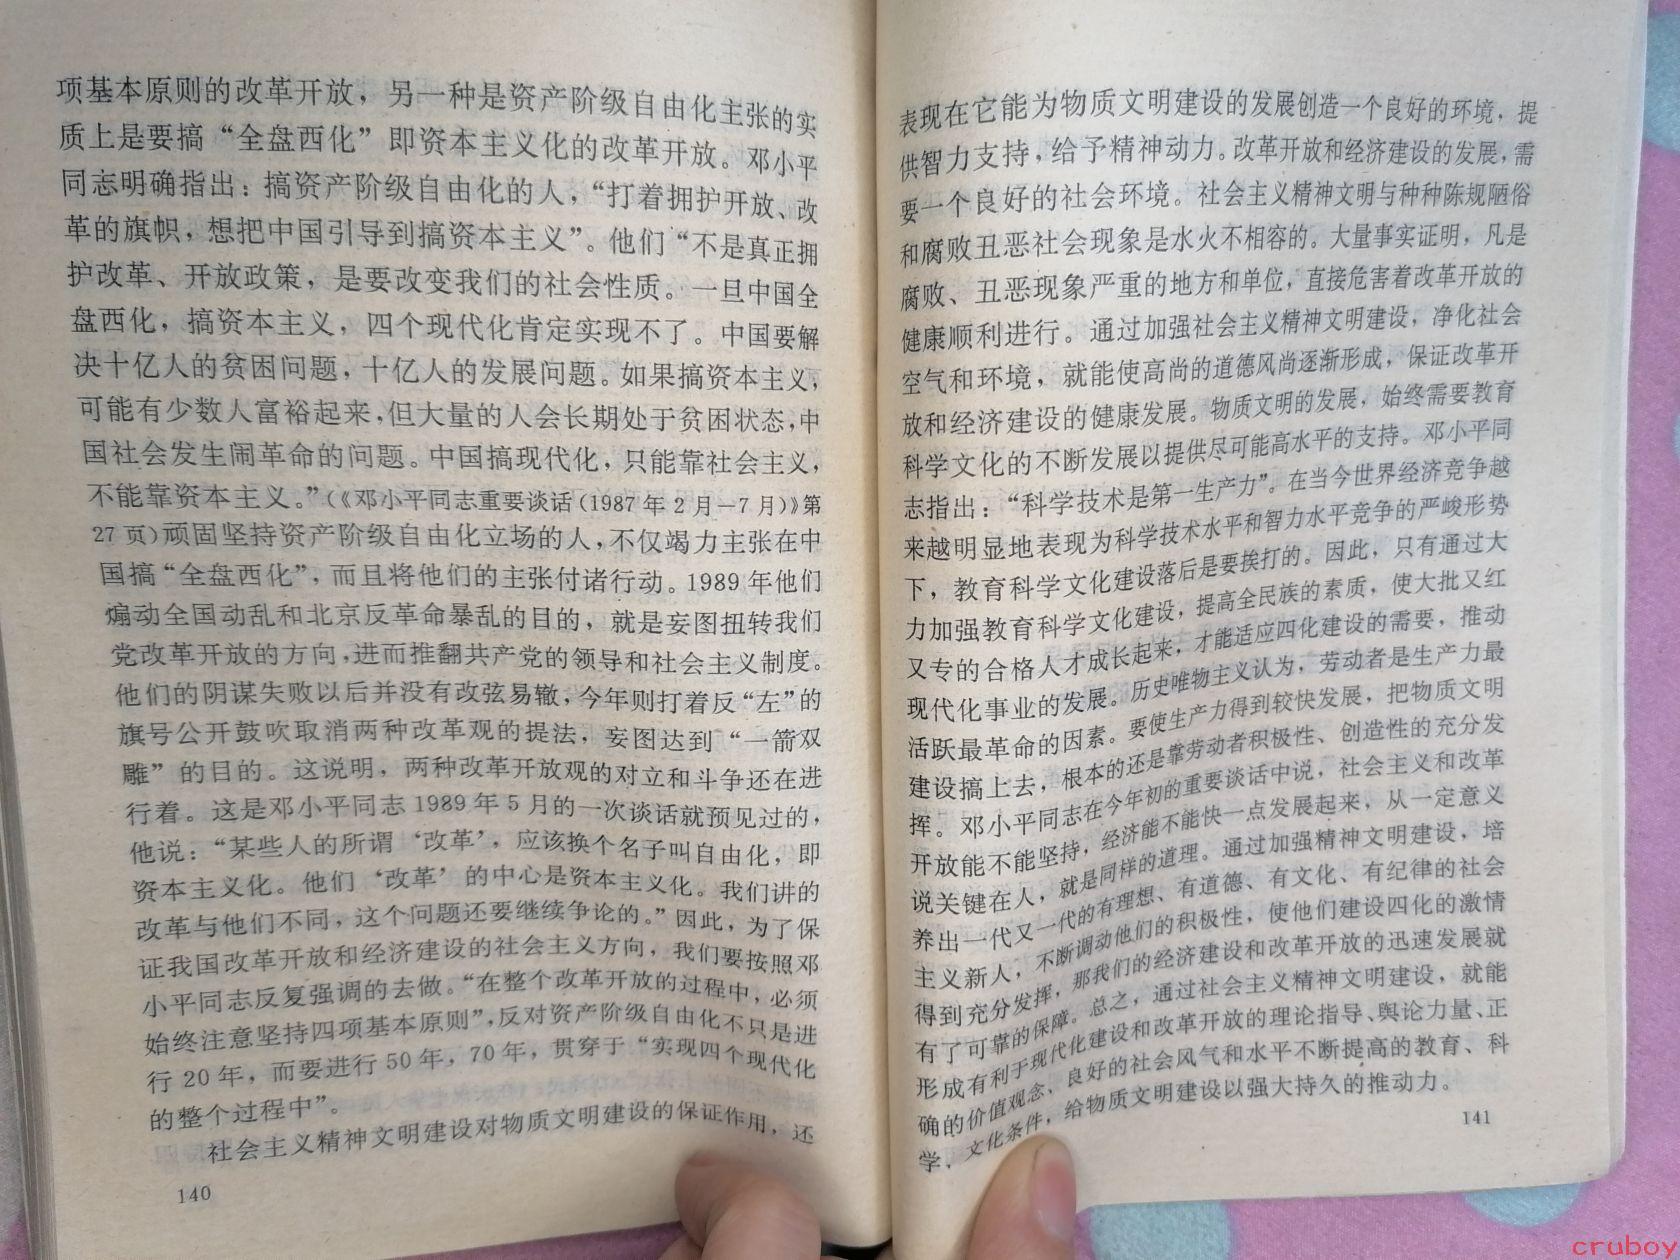 项基本原则的改革开放，另一种是资产阶级自由化主张的实
质上是要搞“全盘西化”即资本主义化的改革开放。邓小平
同志明确指出：搞资产阶级自由化的人，“打着拥护开放、改
革的旗帜，想把中国引导到搞资本主义”。他们“不是真正拥
护改革、开放政策，是要改变我们的社会性质。一旦中国全
盘西化，搞资本主义，四个现代化肯定实现不了。中国要解
决十亿人的贫困问题，十亿人的发展问题。如果搞资本主义，
可能有少数人富裕起来，但大量的人会长期处于贫困状态，中
国社会发生闹革命的问题。中国搞现代化，只能靠社会主义，
不能靠资本主义。”（《邓小平同志重要谈话（1987年2月—7月）》第
27页）顽固坚持资产阶级自由化立场的人，不仅竭力主张在中
国搞“全盘西化”，而且将他们的主张付诸行动。1989年他们
煽动全国动乱和北京反革命暴乱的目的，就是妄图扭转我们
党改革开放的方向，进而推翻共产党的领导和社会主义制度。
他们的阴谋失败以后并没有改弦易辙，今年则打着反“左”的
旗号公开鼓吹取消两种改革观的提法，妄图达到“一箭双
雕”的目的。这说明，两种改革开放观的对立和斗争还在进
行着。这是邓小平同志1989年5月的一次谈话就预见过的，
他说：“某些人的所谓‘改革’，应该换个名子叫自由化，即
资本主义化。他们‘改革’的中心是资本主义化。我们讲的
改革与他们不同，这个问题还要继续争论的。”因此，为了保
证我国改革开放和经济建设的社会主义方向，我们要按照邓
小平同志反复强调的去做。“在整个改革开放的过程中，必须
始终注意坚持四项基本原则”，反对资产阶级自由化不只是进
行20年，而要进行50年，70年，贯穿于“实现四个现代化
的整个过程中”。
社会主义精神文明建设对物质文明建设的保证作用，还
140
表现在它能为物质文明建设的发展创造一个良好的环境，提
供智力支持，给予精神动力。改革开放和经济建设的发展，需
要一个良好的社会环境。社会主义精神文明与种种陈规陋俗
和腐败丑恶社会现象是水火不相容的。大量事实证明，凡是
腐败、丑恶现象严重的地方和单位，直接危害着改革开放的
健康顺利进行。通过加强社会主义精神文明建设，净化社会
空气和环境，就能使高尚的道德风尚逐渐形成，保证改革开
放和经济建设的健康发展。物质文明的发展，始终需要教育
科学文化的不断发展以提供尽可能高水平的支持。邓小平同
志指出：“科学技术是第一生产力”。在当今世界经济竞争越
来越明显地表现为科学技术水平和智力水平竞争的严峻形势
下，教育科学文化建设落后是要挨打的。因此，只有通过大
力加强教育科学文化建设，提高全民族的素质，使大批又红
又专的合格人才成长起来，才能适应四化建设的需要，推动
现代化事业的发展。历史唯物主义认为，劳动者是生产力最
活跃最革命的因素。要使生产力得到较快发展，把物质文明
建设搞上去，根本的还是靠劳动者积极性、创造性的充分发
挥。邓小平同志在今年初的重要谈话中说，社会主义和改革
开放能不能坚持，经济能不能快一点发展起来，从一定意义
说关键在人，就是同样的道理。通过加强精神文明建设，培
养出一代又一代的有理想、有道德、有文化、有纪律的社会
主义新人，不断调动他们的积极性，使他们建设四化的激情
得到充分发挥，那我们的经济建设和改革开放的迅速发展就
有了可靠的保障。总之，通过社会主义精神文明建设，就能
形成有利于现代化建设和改革开放的理论指导、舆论力量、正
确的价值观念、良好的社会风气和水平不断提高的教育、科
学、文化条件，给物质文明建设以强大持久的推动力。
141
cruboy